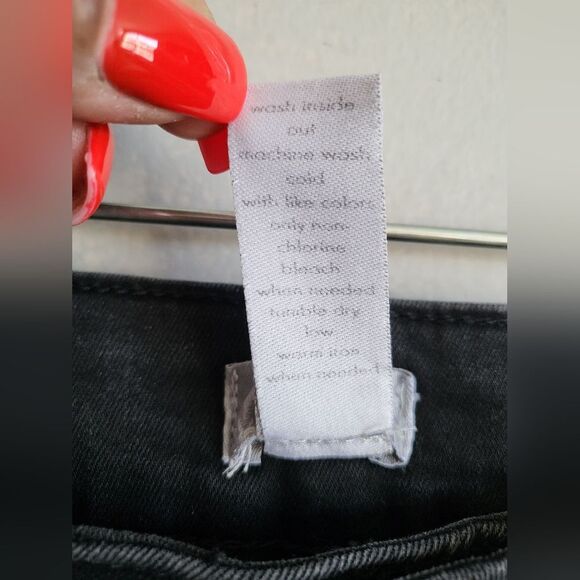 wash inside
out
machine wash
cold
with like colors
only non-
chlorine
bleach
when needed
tumble dry
low
warm iron
when needed